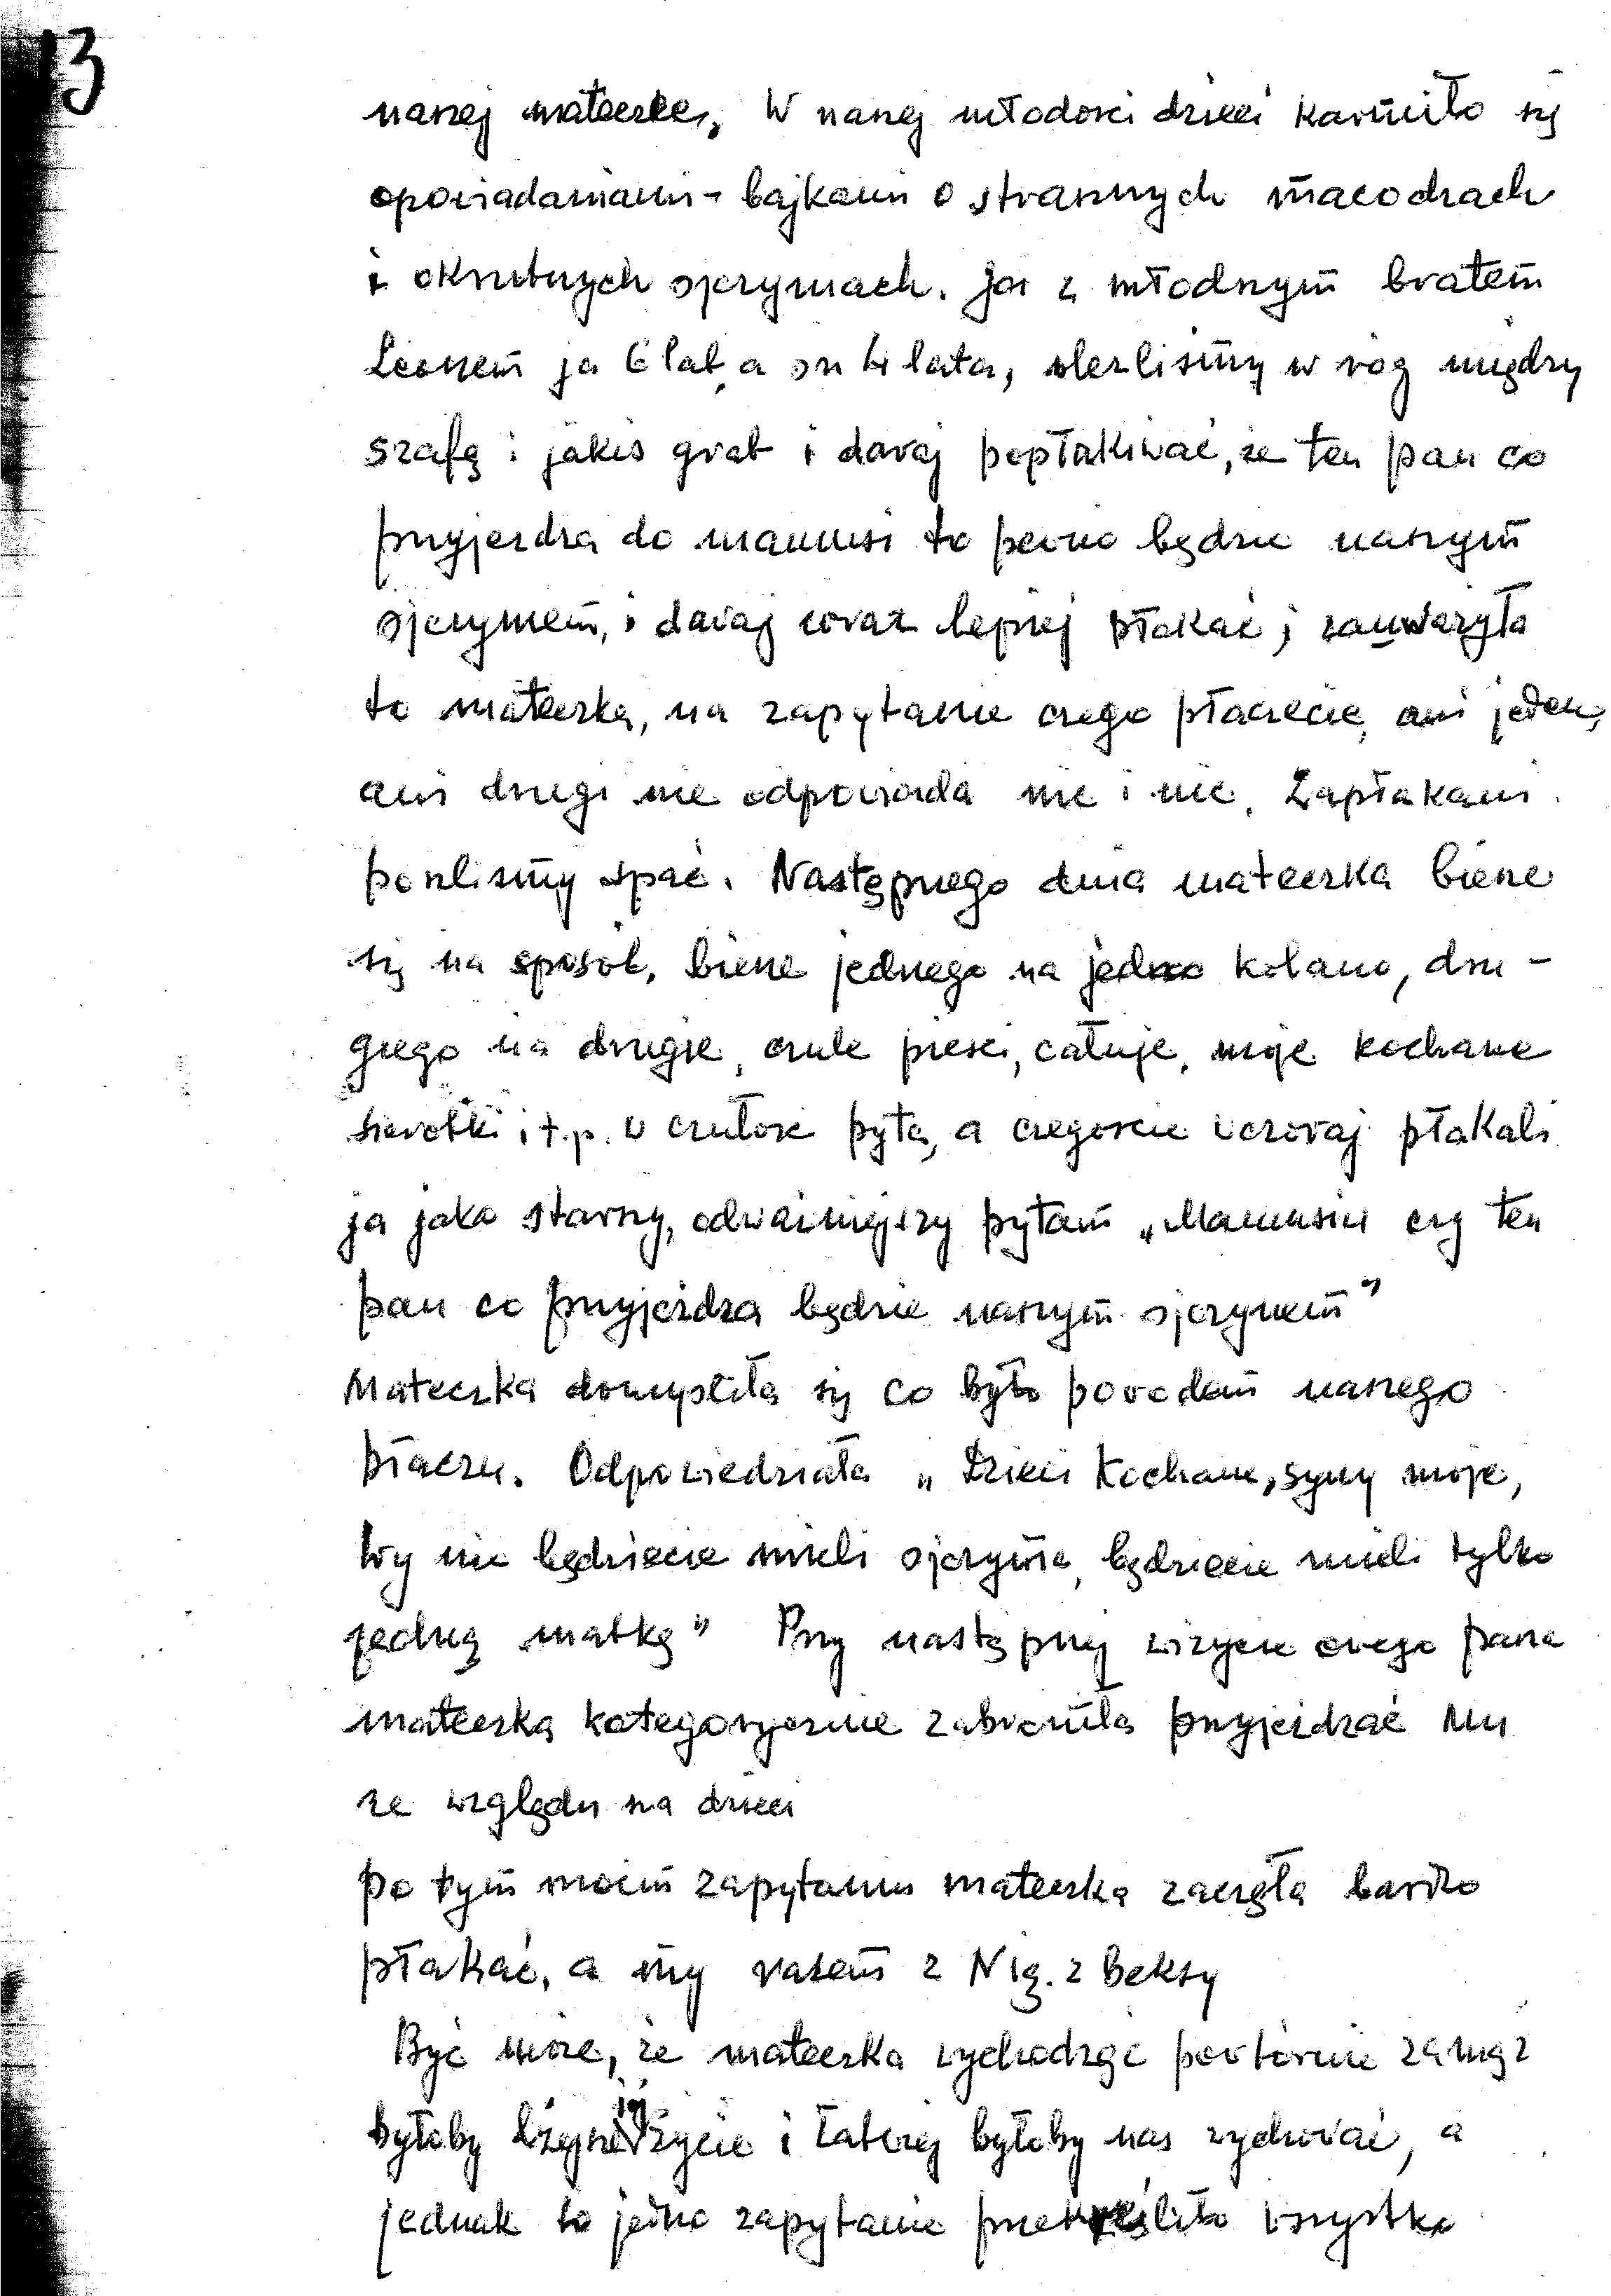 13
naszej mateczki. W naszej młodości dzieci karmiło się
opowiadaniami - bajkami o strasznych macochach
i okrutnych ojczymach. Ja z młodszym bratem
Leonem ja 6 lat, a on 4 lata, wleźliśmy w róg między
szafę i jakiś grat i dawaj popłakiwać, że ten pan co
przyjeżdża do mamusi to pewno będzie naszym
ojczymem, i dawaj coraz lepiej płakać; zauważyła
to mateczka, na zapytanie czego płaczecie, ani jeden,
ani drugi nie odpowiada nic i nic. Zapłakani
poszliśmy spać. Następnego dnia mateczka bierze
się na sposób, bierze jednego na jedno kolano, dru-
giego na drugie, czule pieści, całuje, moje kochane
sierotki i t.p. w czułości pyta, a czegoście wczoraj płakali
ja jako starszy, odważniejszy pytam „Mamusiu czy ten
pan co przyjeżdża będzie naszym ojczymem"
Mateczka domyśliła się co było powodem naszego
płaczu. Odpowiedziała „Dzieci kochane, syny moje,
wy nie będziecie mieli ojczyma, będziecie mieli tylko
jedną matkę" Przy następnej wizycie owego pana
mateczka kategorycznie zabroniła przyjeżdżać Mu
ze względu na dzieci
po tym moim zapytaniu mateczka zaczęła bardzo
płakać, a my razem z Nią. z beksy
Być może, że mateczka wychodząc powtórnie zamąż
byłoby lżejsze jej życie i łatwiej byłoby nas wychować, a
jednak to jedno zapytanie przekreśliło wszystko